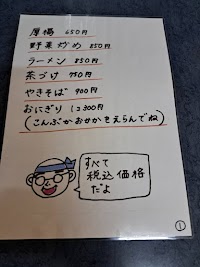 厚揚 650円
野菜炒め 850円
ラーメン 850円
茶づけ 750円
やきそば 900円
おにぎり 1コ300円
(こんぶかおかかをえらんでね)
すべて
税込価格
だよ
1